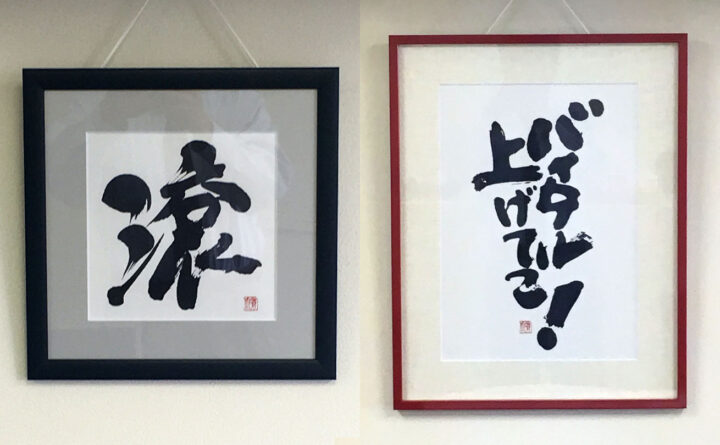 流
バイタル
上げてこ！